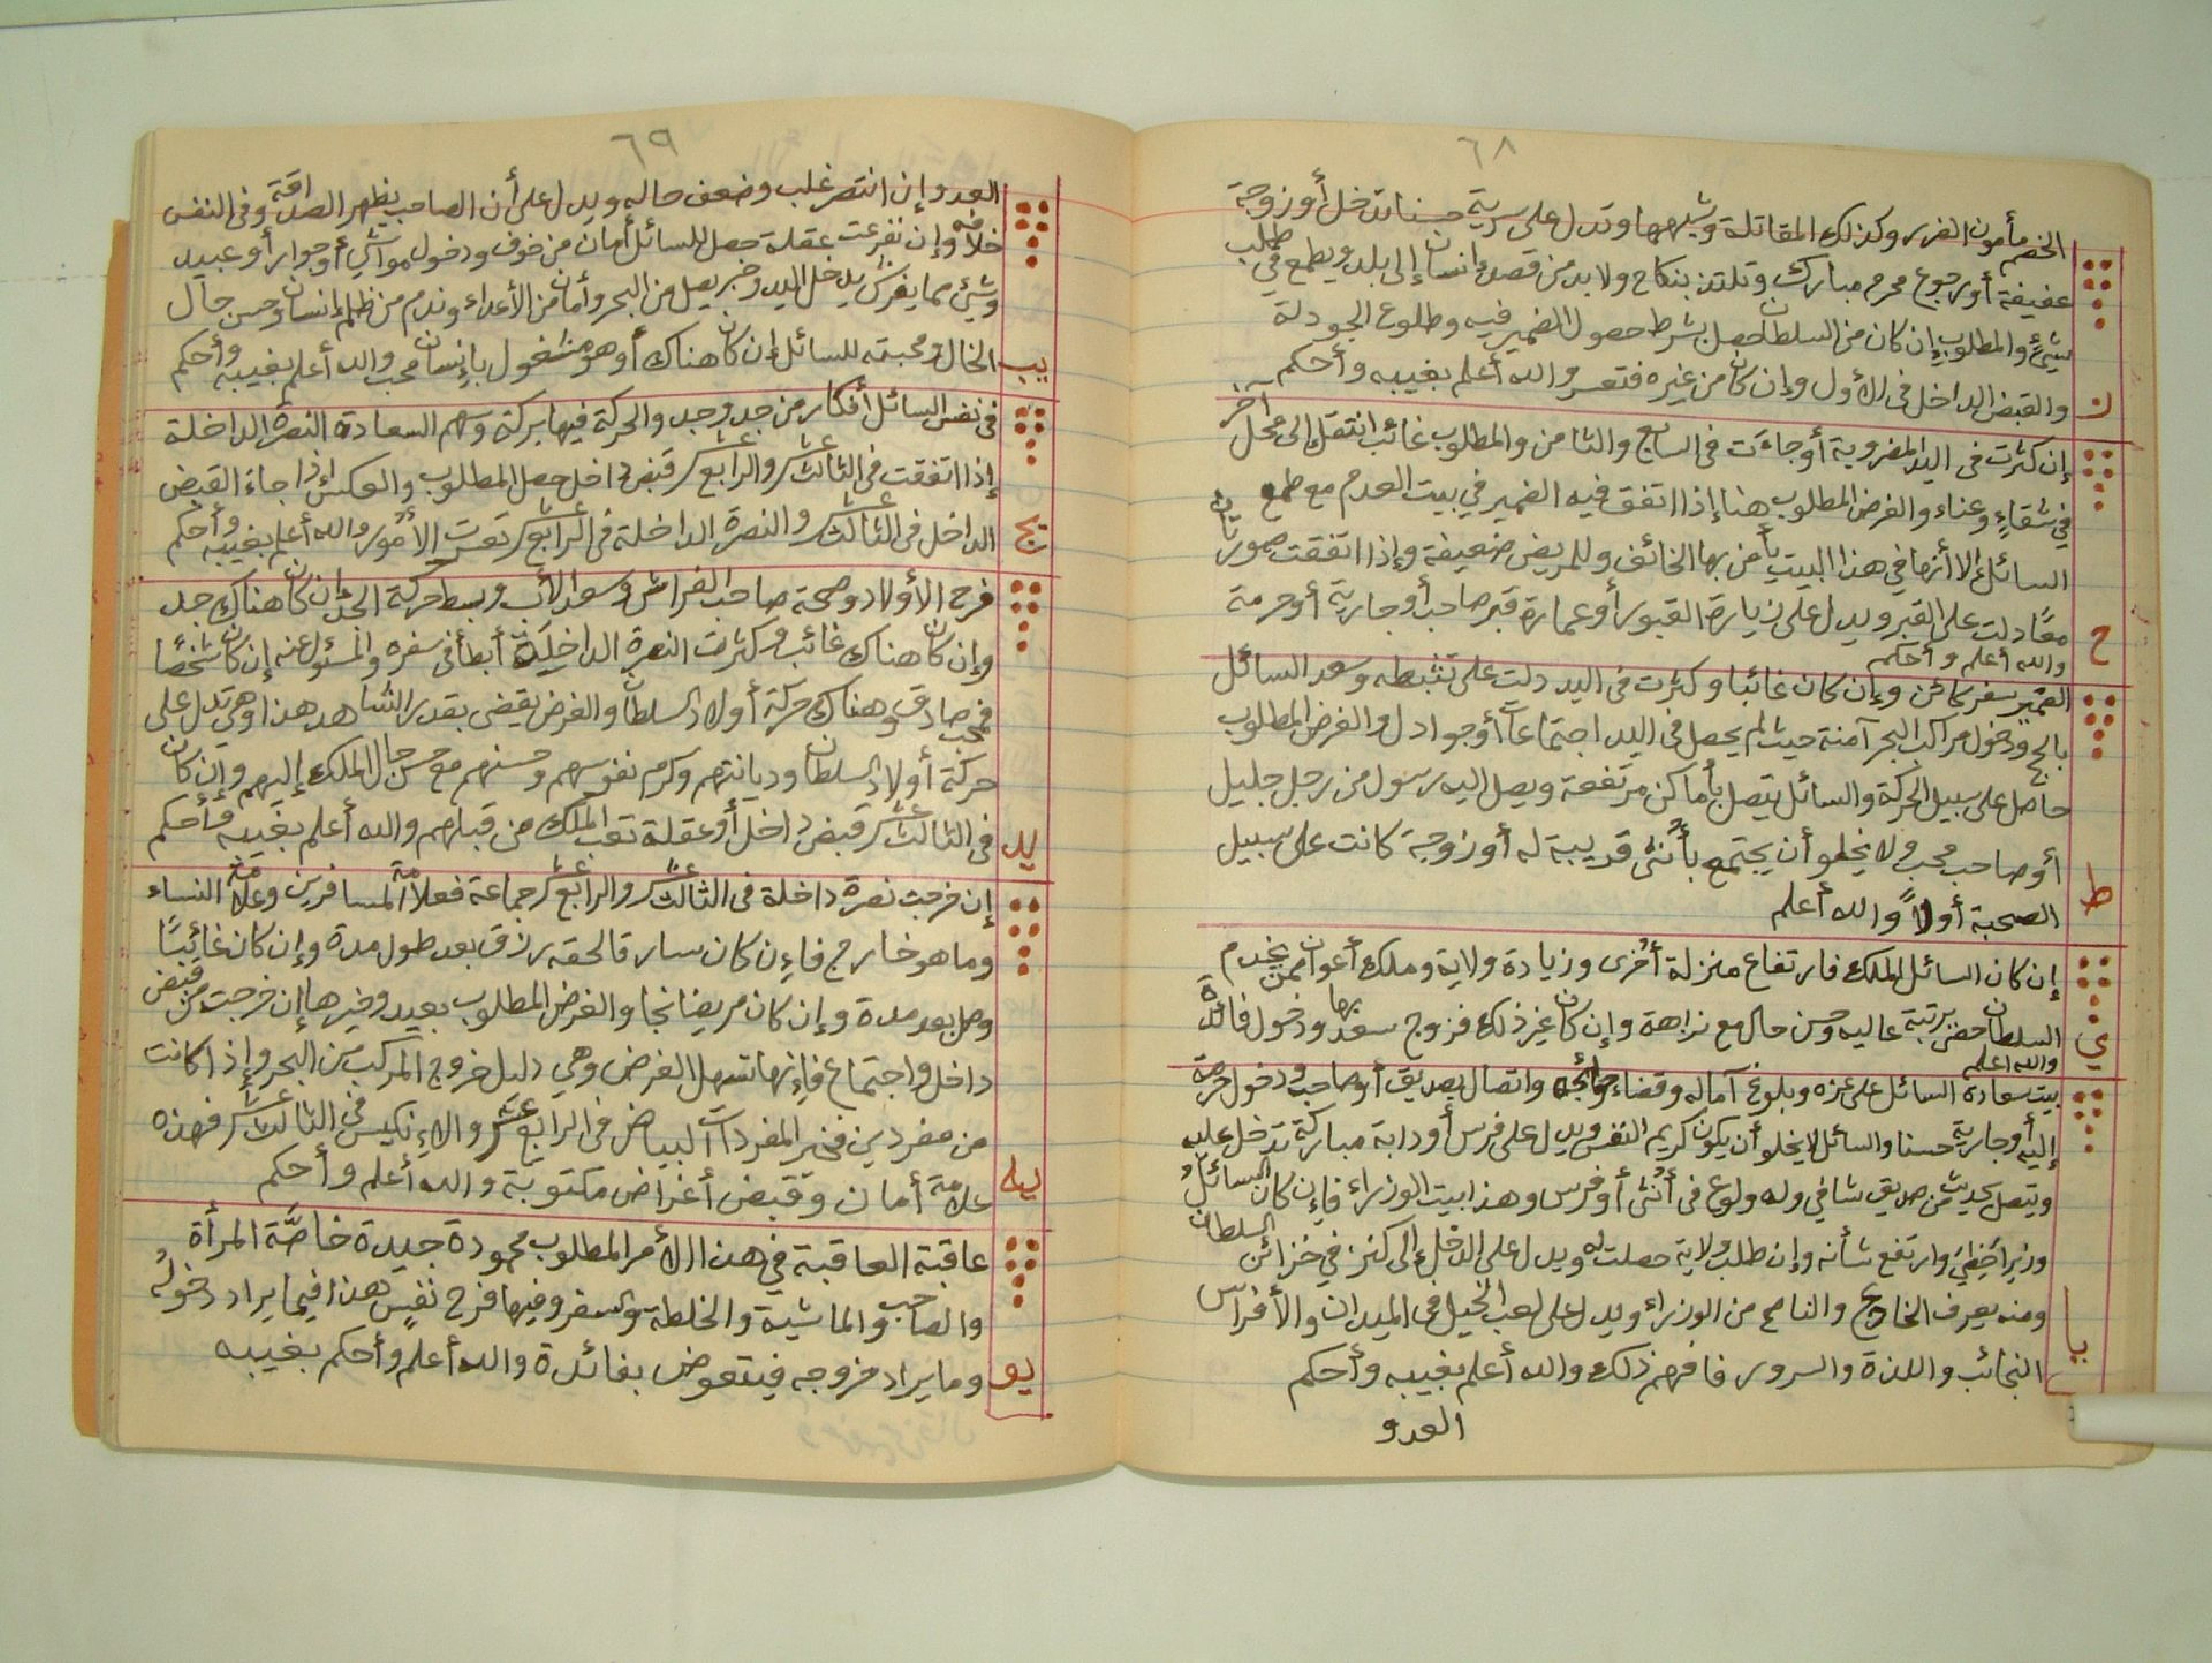 ٦٨
الخصم مأمون الضرر وكذلك المقاتلة وشبهها وتدل على سرية حسنا تدخل أو زوجة
عفيفة أو رجوع محرم مبارك وتلتذ بنكاح ولا بد من قصد انسان إلى بلد ويطمع في طلب
شيئ والمطلوب إن كان من السلطان حصل بشرط حصول الضمير فيه وطلوع الجودلة
والقبض الداخل في الأول وإن كان من غيره فتعسر والله أعلم بغيبه وأحكم
ز
إن كثرت في اليد المضروبة أو جاءت في السابع والثامن والمطلوب غائب انتقل إلى محل آخر
في شقاء وعناء والغرض المطلوب هنا إذا اتفق فيه الضمير في بيت العدم مع طمع
السائل إلا أنها في هذا البيت يأمن بها الخائف وللمريض ضعيفة وإذا اتفقت صورتان
معًا دلت على القبر ويدل على زيارة القبور أو عمارة قبر صاحب أو جارية أو حرمة
والله أعلم وأحكم
ح
الضمير سفر كائن وإن كان غائبا وكثرت في اليد دلت على تثبطه وسعد السائل
بالحج ودخول مراكب البحر آمنة حيث لم يحصل في اليد اجتماعات أو جوادل والغرض المطلوب
حاصل على سبيل الحركة والسائل يتصل بأماكن مرتفعة ويصل اليه رسول من رجل جليل
أو صاحب محب ولا يخلو أن يجتمع بأنثى قريبة له أو زوجة كانت على سبيل
الصحبة أولاً والله أعلم
ط
إن كان السائل الملك فارتفاع منزلة أخرى وزيادة ولاية وملك أعوان ممن يخدم
السلطان حضر برتبة عاليه وحسن حال مع نزاهة وإن كان غير ذلك فزوج سعد بها ودخول فائدة
والله اعلم
ي
بيت سعادة السائل على عزه وبلوغ آماله وقضاء حوائجه واتصال بصديق أو صاحب ودخول حرمة
إليه أو جارية حسنا والسائل لا يخلو أن يكون كريم النفس ويدل على فرس أو دابة مباركة تدخل عليه
ويتصل بحديث من صديق شافي وله ولوع في أنثى أو فرس وهذا بيت الوزراء فإن كان السائل
وزيرا حَظِيَ وارتفع شأنه وإن طلب ولاية حصلت له ويدل على الدخل إلى كنز في خزائن السلطان
ومنه يعرف الخارج والناصح من الوزراء ويدل على لعب الخيل في الميدان والأفراس
النجائب واللذة والسرور فافهم ذلك والله أعلم بغيبه وأحكم
يا
العدو
٦٩
العدو إن انتصر غلب وضعف حاله ويدل على أن الصاحب يظهر الصداقة وفي النفس
خلافه وإن تفرعت عقلة حصل للسائل أمان من خوف ودخول مواشي أو جوار أو عبيد
وشيئ مما يفرش يدخل اليد وخبر يصل من البحر وأمان من الأعداء وندم من ظلم إنسان وحسن حال
الخال ومحبته للسائل إن كان هناك أو هو مشغول بإنسان محب والله أعلم بغيبه وأحكم
يب
في نفس السائل أفكار من جد وجد والحركة فيها بركة وسهم السعادة النصرة الداخلة
إذا اتفقت في الثالث عشر والرابع عشر قبض داخل حصل المطلوب والعكس إذا جاء القبض
الداخل في الثالث عشر والنصرة الداخلة في الرابع عشر تعسرت الأمور والله أعلم بغيبه وأحكم
يج
فرح الأولاد وصحة صاحب الفراش وسعد الأب وبسط حركة الجد إن كان هناك جد
وإن كان هناك غائب وكثرت النصرة الداخلة أبطأ في سفره والمسئول عنه إن كان شخصًا
فمحب صادق وهناك حركة أولاد السلطان والغرض يقضى بقدر الشاهد هذا وهي تدل على
حركة أولاد السلطان وديانتهم وكرم نفوسهم وحسنهم مع حسن حال الملك إليهم وإن كان
في الثالث عشر قبض داخل أو عقلة تعب الملك من قبلهم والله أعلم بغيبه وأحكم
يد
إن خرجت نصرة داخلة في الثالث عشر والرابع عشر جماعة فعلامة المسافرين وعلامة النساء
وما هو خارج فإن كان سارقا لحقه رزق بعد طول مدة وإن كان غائبًا
وصل بعد مدة وإن كان مريضا نجا والغرض المطلوب بعيد وفيها إن خرجت من قبض
داخل واجتماع فإنها تسهل الغرض وهي دليل خروج المركب من البحر وإذا كانت
من مفردين فخير المفردات البياض في الرابع عشر والإنكيس في الثالث عشر فهذه
علامة أمان وقبض أغراض مكتوبة والله أعلم وأحكم
يه
عاقبة العاقبة في هذا الأمر المطلوب محمودة جيدة خاصَّة المرأة
والصاحب والماشية والخلطة والسفر وفيها فرح نفيس هذا فيما يراد دخوله
وما يراد خروجه فيتعوض بفائدة والله أعلم وأحكم بغيبه
يو